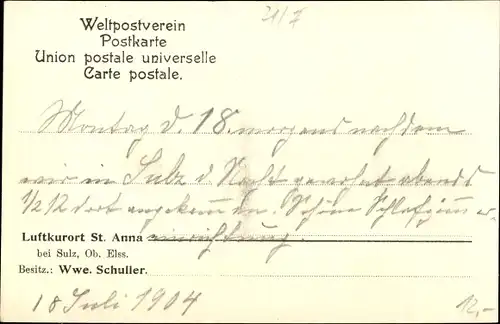 21/7
Weltpostverein
Postkarte
Union postale universelle
Carte postale.
Montag d. 18. morgens nachdem
wir in Sulz d. Nacht abends
1/2 12 dort Schöne
Luftkurort St. Anna
bei Sulz, Ob. Elss.
Besitz.: Wwe. Schuller.
18 Juli 1904
12,-